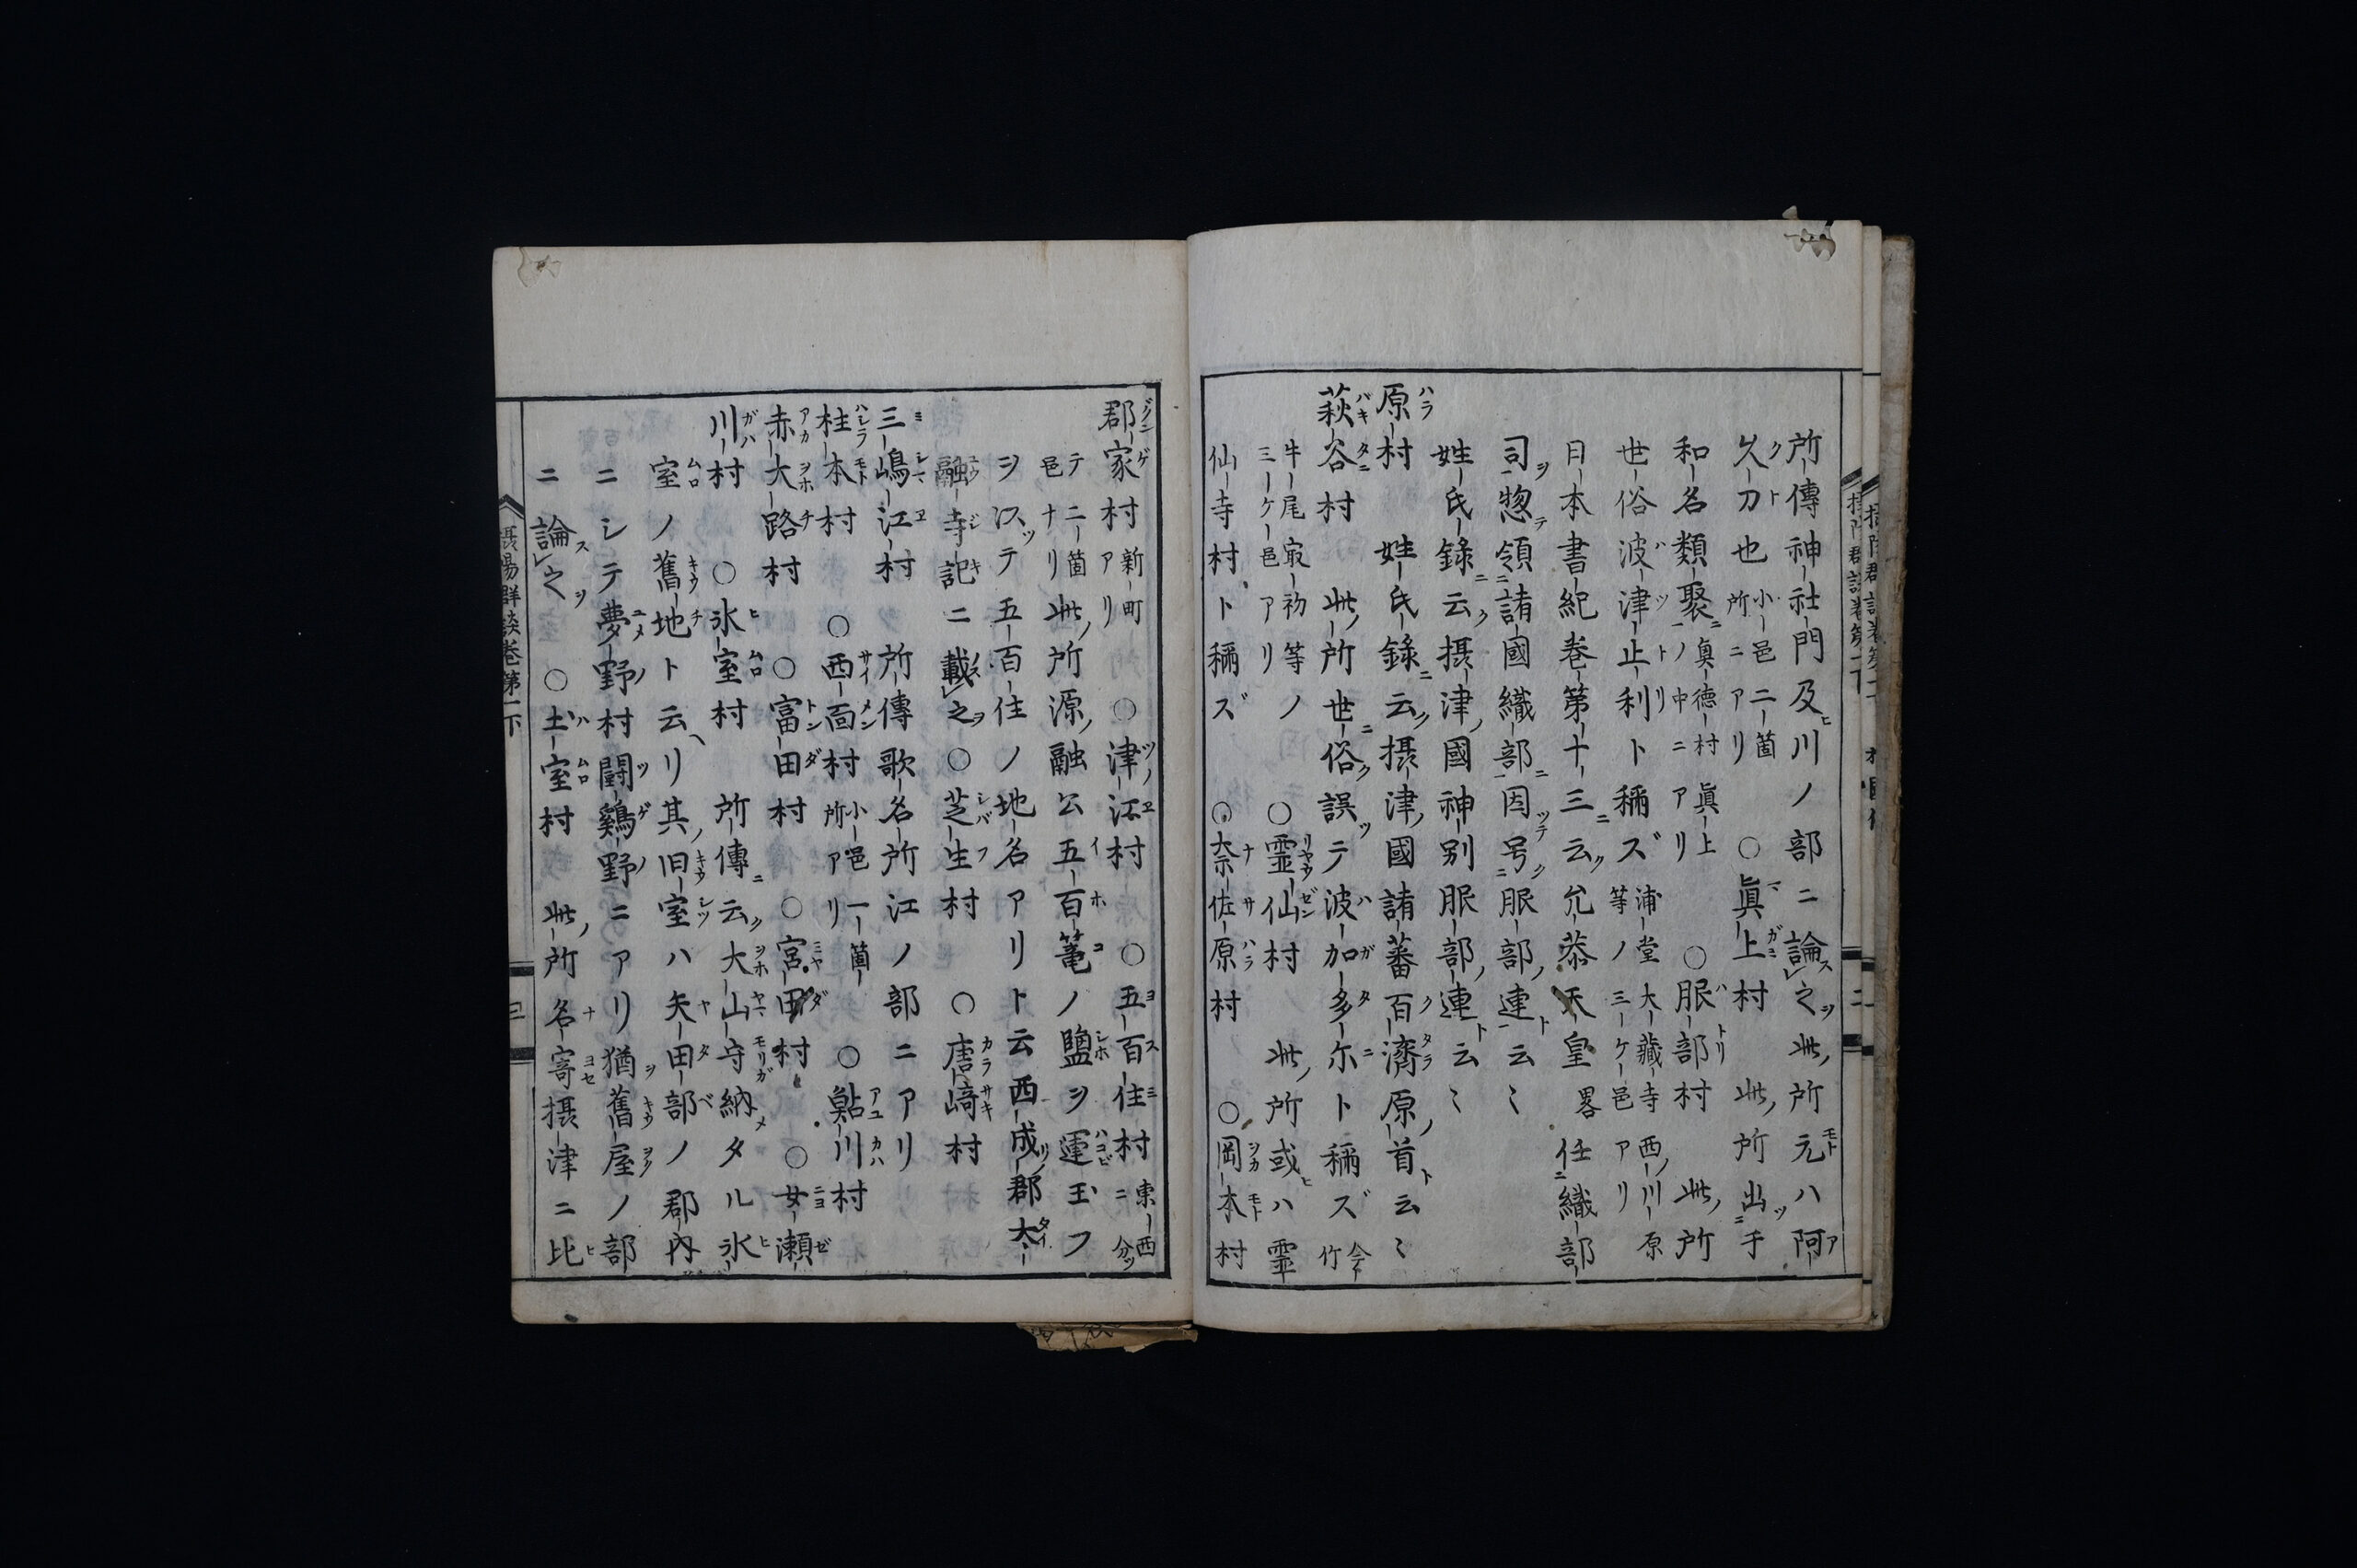 所傳神社門及川ノ部ニ論之此所元ハ阿
久刀也 小邑二箇所ニアリ ○眞上村 此所出于
和名類聚 眞德村眞上ノ中ニアリ ○服部村 此所
世俗波津止利ト稱ズ 浦堂大藏寺西川原等ノ三ケ邑アリ
日本書紀巻第十三云允恭天皇畧任織部
司惣領諸國織部因号服部連云〻
姓氏錄云攝津國神別服部連云〻
原村 姓氏錄云攝津國諸蕃百濟原首云〻
萩谷村 此所世俗誤テ波加多尓ト稱ズ 今竹
牛尾㝡初等ノ三ケ邑アリ ○霊仙村 此所或ハ霊
仙寺村ト稱ズ ○奈佐原村 ○岡本村
郡家村 新町アリ ○津江村 ○五百住村 東西ニ分ツ
テ二箇邑ナリ 此所源融公五百篭ノ鹽ヲ運玉フ
ヲ以テ五百住ノ地名アリト云西成郡大
融寺記ニ載之 ○芝生村 ○唐﨑村
三嶋江村 所傳歌名所江ノ部ニアリ
柱本村 ○西面村 小邑一箇所アリ ○鮎川村
赤大路村 ○富田村 ○宮田村 ○女瀬
川村 ○氷室村 所傳云大山守納タル氷
室ノ舊地ト云リ其旧室ハ矢田部ノ郡内
ニシテ夢野村闘鷄野ニアリ猶舊屋ノ部
ニ論之 ○土室村 此所名寄攝津ニ比
摂陽群談巻第二下